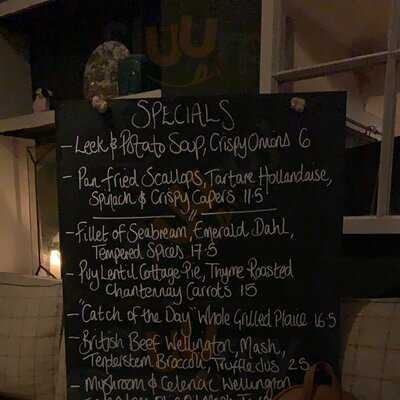 SPECIALS
- Leek & Potato Soup, Crispy Onions 6
- Pan fried Scallops, Tartare Hollandaise,
Spinach & Crispy Capers 11.5
- Fillet of Seabream, Emerald Dahl,
Tempered Spices 17.5
- Puy Lentil Cottage Pie, Thyme Roasted
Chantennay Carrots 15
- "Catch of the Day" Whole Grilled Plaice 16.5
- British Beef Wellington, Mash,
Tenderstem Broccoli, Truffle Jus 25
- Mushroom & Celeriac Wellington